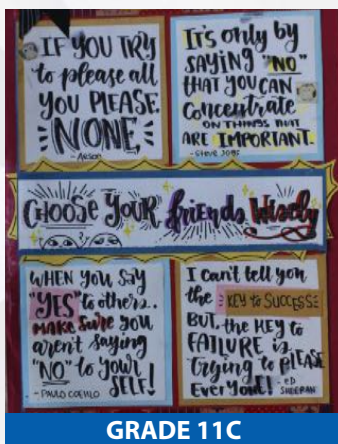 IF YOU TRY
to please all
YOU PLEASE
NONE
- Aesop
It's only by
SAYING "NO"
THAT YOU CAN
Concentrate
ON THINGS THAT
ARE IMPORTANT.
- STEVE JOBS
CHOOSE YOUR friends Wisely
WHEN YOU SAY
"YES" to others..
MAKE SURE YOU
aren't saying
"NO" to YOUR
SELF!
- PAULO COELHO
I can't tell you
the KEY to SUCCESS
BUT, the KEY to
FAILURE is
trying to PLEASE
Everyone! - ED
SHEERAN
GRADE 11C